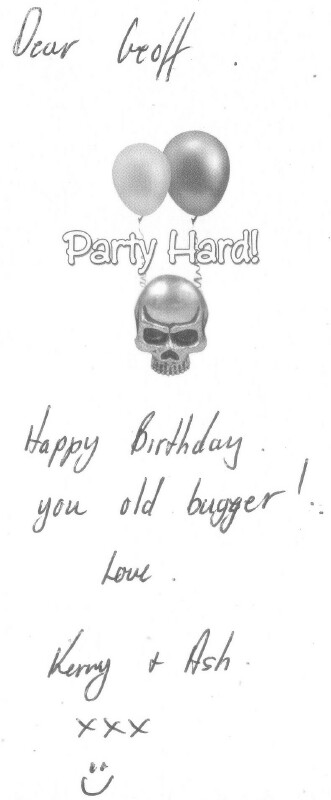 Dear Geoff.
Party Hard!
Happy Birthday.
you old bugger!
Love.
Kerry + Ash.
xxx